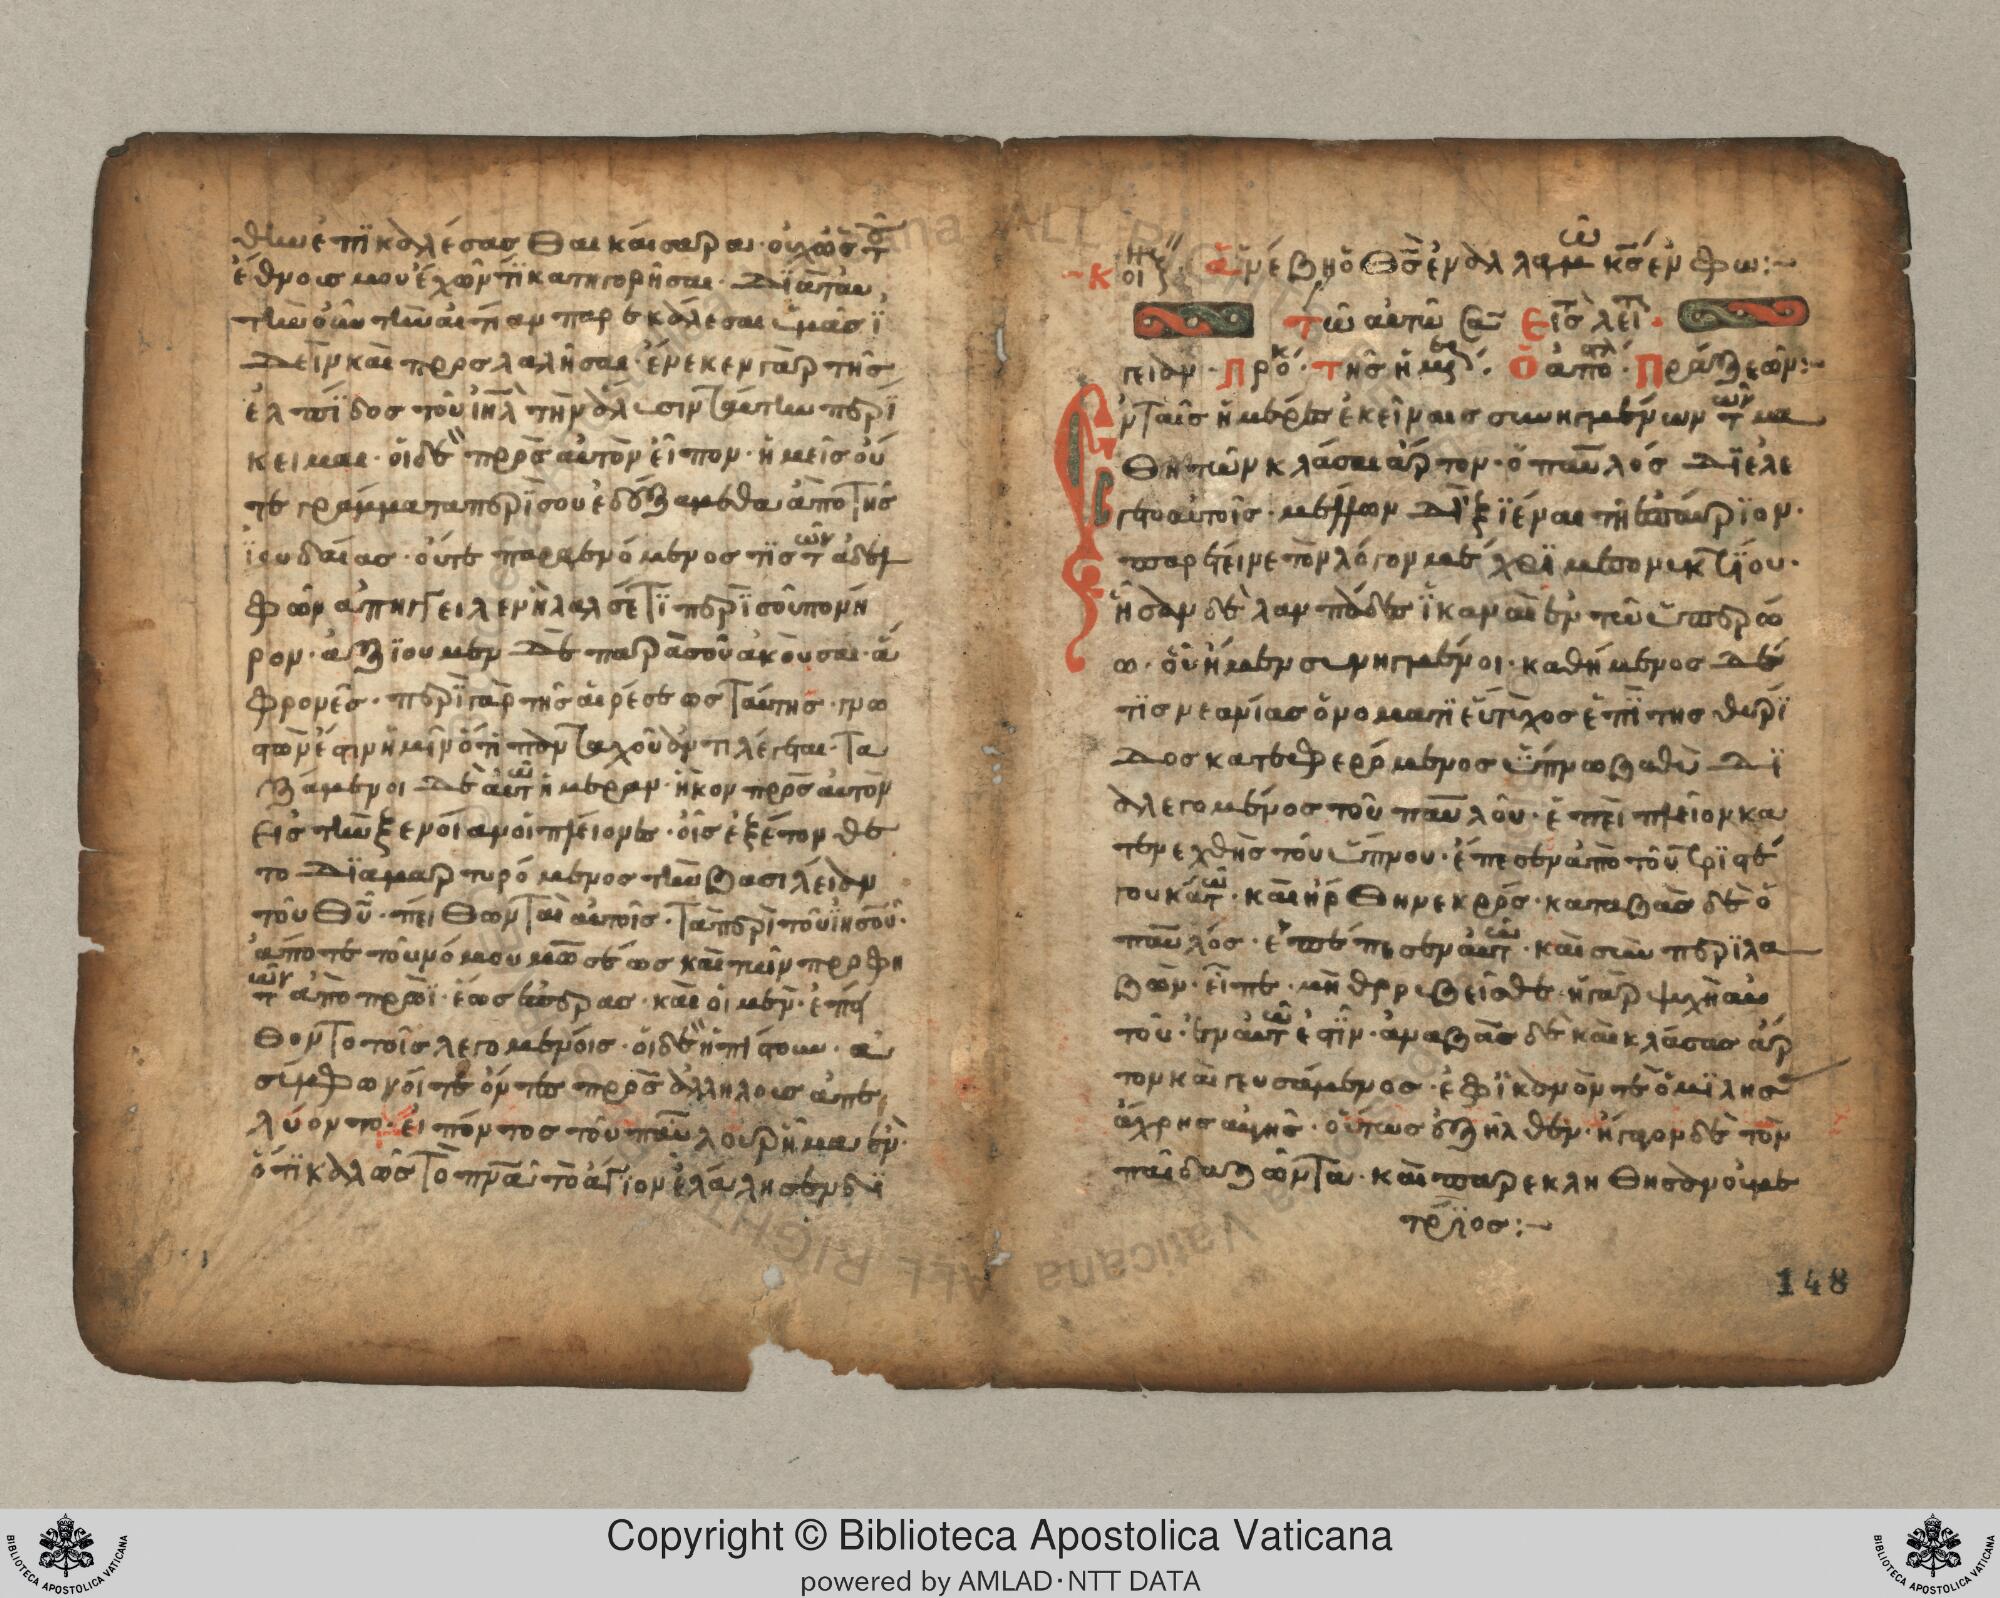 θην ἐπικαλέσασθαι καίσαρα· οὐχ ὡς τοῦ
ἔθνους μου ἔχων τι κατηγορῆσαι· διὰ ταύ
την οὖν τὴν αἰτίαν παρεκάλεσα ὑμᾶς ἰ
δεῖν καὶ προσλαλῆσαι· ἕνεκεν γὰρ τῆς
ἐλπίδος τοῦ ἰηλ τὴν ἅλυσιν ταύτην περί
κειμαι· οἱ δὲ πρὸς αὐτὸν εἶπον· ἡμεῖς οὔ
τε γράμματα περὶ σοῦ ἐδεξάμεθα ἀπὸ τῆς
ἰουδαίας· οὔτε παραγενόμενος τις τῶν ἀδελ
φῶν ἀπήγγειλεν ἢ λάλησέ τι περὶ σοῦ πονη
ρον· ἀξιοῦμεν δὲ παρὰ σοῦ ἀκοῦσαι ἃ
φρονεῖς· περὶ γὰρ τῆς αἱρέσεως ταύτης· γνω
στὸν ἐστιν ἡμῖν ὅτι πανταχοῦ ἀντιλέγεται· τα
ξάμενοι δὲ αὐτῷ ἡμέραν· ἧκον πρὸς αὐτὸν
εἰς τὴν ξενοίαν οἱ πλείονες· οἷς ἐξέτον θε
το διαμαρτυρόμενος τὴν βασιλείαν
τοῦ θυ· πείθων τε αὐτοῖς· τὰ περὶ τοῦ ἰησοῦ·
ἀπό τε τοῦ νόμου μωσέως καὶ τῶν προφη
τῶν ἀπὸ πρωῒ· ἕως ἑσπέρας· καὶ οἱ μὲν· ἐπεί
θοντο τοῖς λεγομένοις· οἱ δὲ ἠπίστουν· ἀ
σύμφωνοί τε ὄντες πρὸς ἀλλήλους ἀπε
λύοντο· εἰπόντος τοῦ παύλου ῥῆμα ἕν·
ὅτι καλῶς τὸ πνα τὸ ἅγιον ἐλάλησεν δι
κοι ἀνέβη ὁ θς ἐν ἀλαλαγμῷ κς ἐν φω:~
τῷ αὐτῷ Εἰς λει
γειαν· Προκ· τῆς ἡμέ· Ὁ ἀπό· Πράξεων:~
Εν ταῖς ἡμέραις ἐκείναις συνηγμένων τῶν μα
θητῶν κλάσαι ἄρτον· ὁ παῦλος διελέ
γετο αὐτοῖς· μέλλων ἐξιέναι τῇ ἐπαύριον·
παρέτεινε τὸν λόγον μέχρι μεσονυκτίου·
ἦσαν δὲ λαμπάδες ἱκαναὶ ἐν τῷ ὑπερώ
ω· οὗ ἦμεν συνηγμένοι· καθήμενος δέ
τις νεανίας ὀνόματι εὔτυχος ἐπὶ τῆς θυρί
δος καταφερόμενος ὕπνω βαθῦ δι
αλεγομένος τοῦ παύλου· ἐπὶ πλεῖον κα
τενεχθὴς τοῦ ὕπνου· ἔπεσεν ἀπὸ τοῦ τριστέ
γου κάτω· καὶ ἤρθη νεκρός· καταβὰς δὲ ὁ
παῦλος· ἐπέπεσεν αὐτῷ· καὶ συμπεριλα
βὼν· εἶπε· μὴ θορυβεῖσθε· ἡ γὰρ ψυχὴ αὐ
τοῦ· ἐν αὐτῷ ἐστιν· ἀναβὰς δὲ καὶ κλάσας ἄρ
τον καὶ γευσάμενος· ἐφ ἱκανόν τε ὁμιλήσ
ἄχρης αὐγῆς· οὕτως ἐξῆλθεν· ἤγαγον δὲ τὸν
παῖδα ζῶντα· καὶ παρεκλήθησαν οὐ με
τρίος:~
148
Copyright © Biblioteca Apostolica Vaticana
powered by AMLAD·NTT DATA
BIBLIOTECA APOSTOLICA VATICANA
BIBLIOTECA APOSTOLICA VATICANA